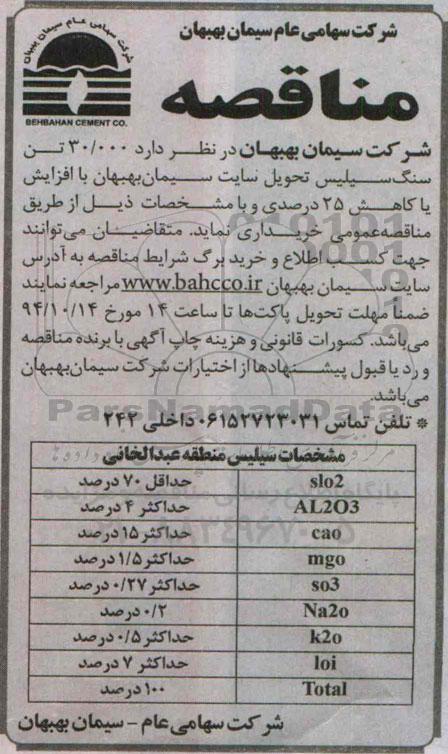 شرکت سهامی عام سیمان بهبهان
شرکت سهامی عام سیمان بهبهان
BEHBAHAN CEMENT CO.
مناقصه
شرکت سیمان بهبهان در نظر دارد ۳۰/۰۰۰ تن
سنگ سیلیس تحویل سایت سیمان بهبهان با افزایش
یا کاهش ۲۵ درصدی و با مشخصات ذیل از طریق
مناقصه عمومی خریداری نماید. متقاضیان می توانند
جهت کسب اطلاع و خرید برگ شرایط مناقصه به آدرس
سایت سیمان بهبهان www.bahcco.ir مراجعه نمایند
ضمناً مهلت تحویل پاکت‌ها تا ساعت ۱۴ مورخ ۹۴/۱۰/۱۴
می‌باشد. کسورات قانونی و هزینه چاپ آگهی با برنده مناقصه
و رد یا قبول پیشنهادها از اختیارات شرکت سیمان بهبهان
می‌باشد.
* تلفن تماس ۰۶۱۵۲۷۲۳۰۳۱ داخلی ۲۴۲
مشخصات سیلیس منطقه عبدالخانی
slo2 حداقل ۷۰ درصد
AL2O3 حداکثر ۴ درصد
cao حداکثر ۱۵ درصد
mgo حداکثر ۱/۵ درصد
so3 حداکثر ۰/۲۷ درصد
Na2o ۰/۲ درصد
k2o حداکثر ۰/۵ درصد
loi حداکثر ۷ درصد
Total ۱۰۰ درصد
شرکت سهامی عام - سیمان بهبهان
ParsNamadData